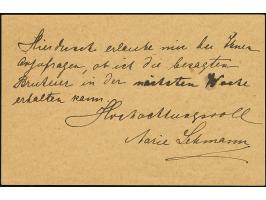 Hierdurch erlaube mir bei Ihnen
anzufragen, ob ich die besagten
in der nächsten Woche
erhalten kann.
Hochachtungsvoll
Marie Lehmann